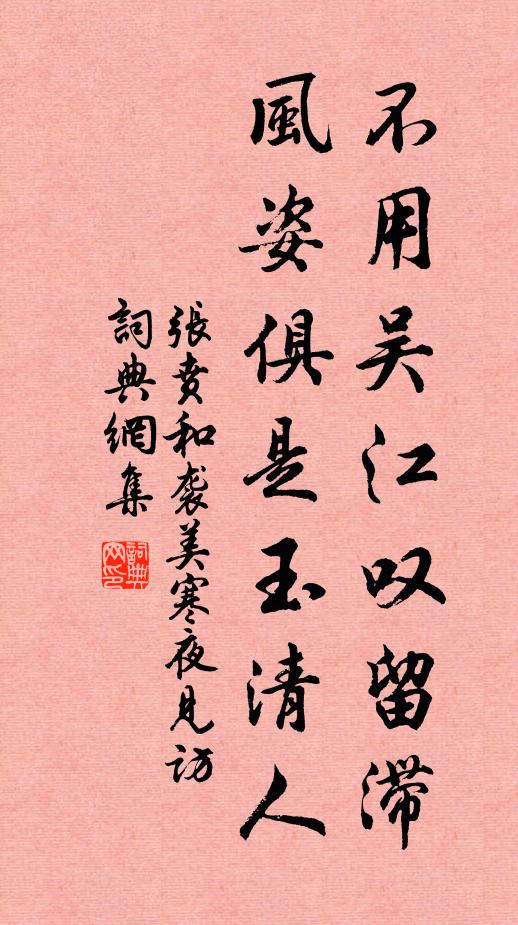 不用吴江叹留滞
風姿俱是玉清人
張賁和袭美寒夜見訪
詞典網集
詞典网印